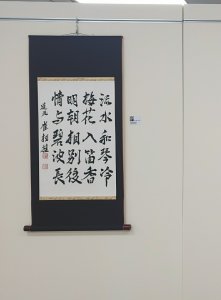 流水和琴冷
梅花入笛香
明朝相别後
情与碧波長